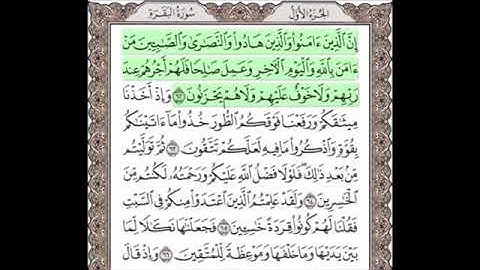 الجزء الأول سورة البقرة
إِنَّ الَّذِينَ ءَامَنُوا وَالَّذِينَ هَادُوا وَالنَّصَارَى وَالصَّابِئِينَ مَنْ
ءَامَنَ بِاللَّهِ وَالْيَوْمِ الْآخِرِ وَعَمِلَ صَالِحًا فَلَهُمْ أَجْرُهُمْ عِندَ
رَبِّهِمْ وَلَا خَوْفٌ عَلَيْهِمْ وَلَا هُمْ يَحْزَنُونَ ٦٢ وَإِذْ أَخَذْنَا
مِيثَاقَكُمْ وَرَفَعْنَا فَوْقَكُمُ الطُّورَ خُذُوا مَا ءَاتَيْنَاكُم
بِقُوَّةٍ وَاذْكُرُوا مَا فِيهِ لَعَلَّكُمْ تَتَّقُونَ ٦٣ ثُمَّ تَوَلَّيْتُم
مِّن بَعْدِ ذَلِكَ فَلَوْلَا فَضْلُ اللَّهِ عَلَيْكُمْ وَرَحْمَتُهُ لَكُنتُم مِّنَ
الْخَاسِرِينَ ٦٤ وَلَقَدْ عَلِمْتُمُ الَّذِينَ اعْتَدَوْا مِنكُمْ فِي السَّبْتِ
فَقُلْنَا لَهُمْ كُونُوا قِرَدَةً خَاسِئِينَ ٦٥ فَجَعَلْنَاهَا نَكَالًا لِّمَا
بَيْنَ يَدَيْهَا وَمَا خَلْفَهَا وَمَوْعِظَةً لِّلْمُتَّقِينَ ٦٦ وَإِذْ قَالَ